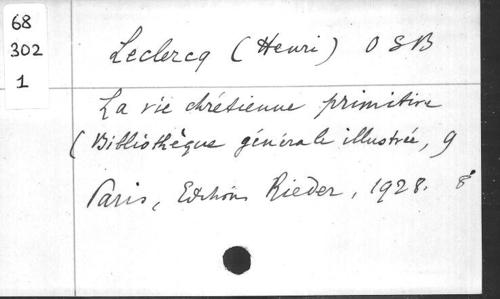 68
302
1
Leclercq (Henri) O S B
La vie chrétienne primitive
(Bibliothèque générale illustrée, 9
Paris, Editions Rieder, 1928. 8°